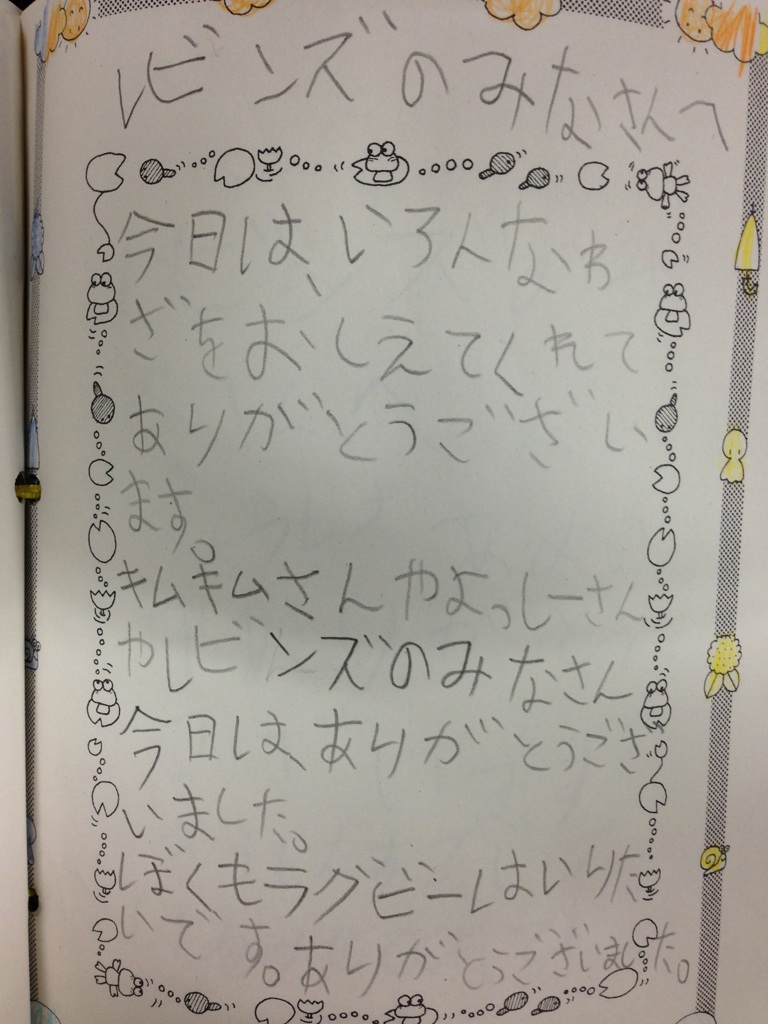 レビンズのみなさんへ
今日は、いろんなわ
ざをおしえてくれて
ありがとうござい
ます。
キムキムさんやよっしーさん
やレビンズのみなさん
今日は、ありがとうござ
いました。
ぼくもラグビーしはいりた
いです。ありがとうございました。